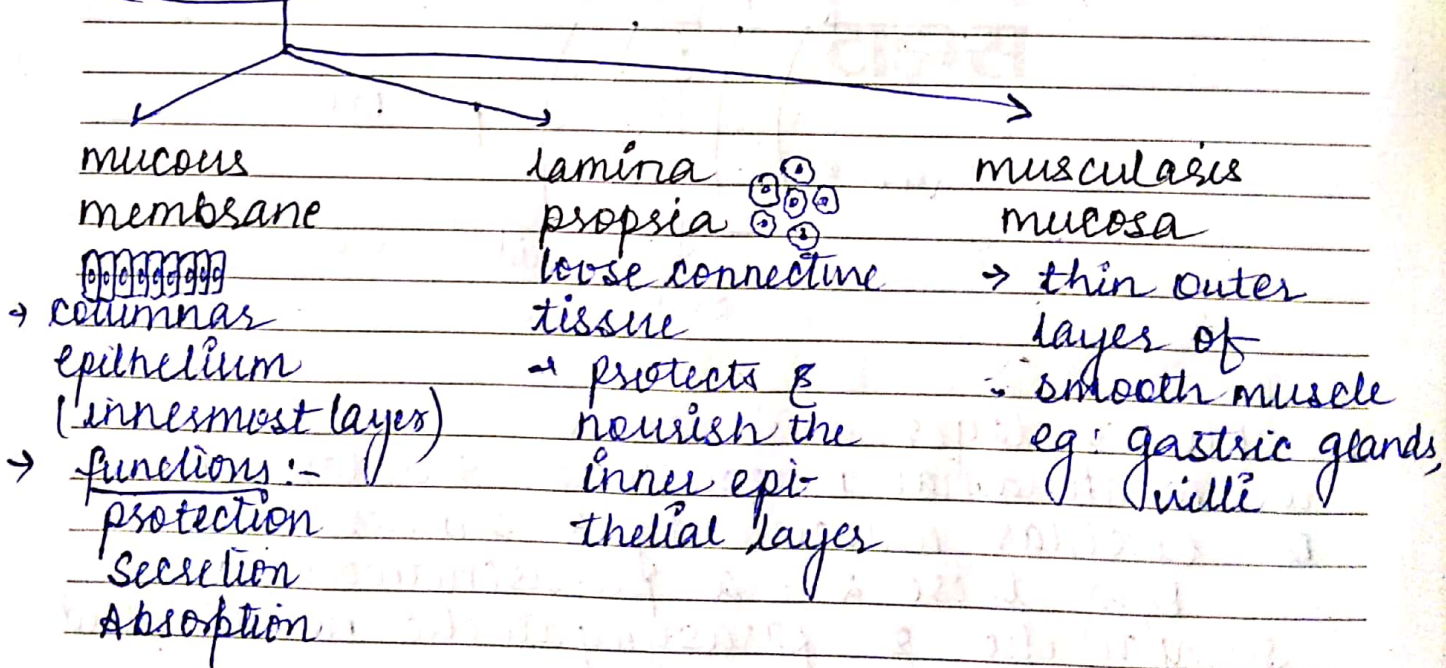 mucous
membrane
→ columnar
epithelium
(innermost layer)
→ functions :-
protection
Secretion
Absorption
lamina
propria
loose connective
tissue
→ protects &
nourish the
inner epi-
thelial layer
muscularis
mucosa
→ thin outer
layer of
smooth muscle
eg: gastric glands,
villi